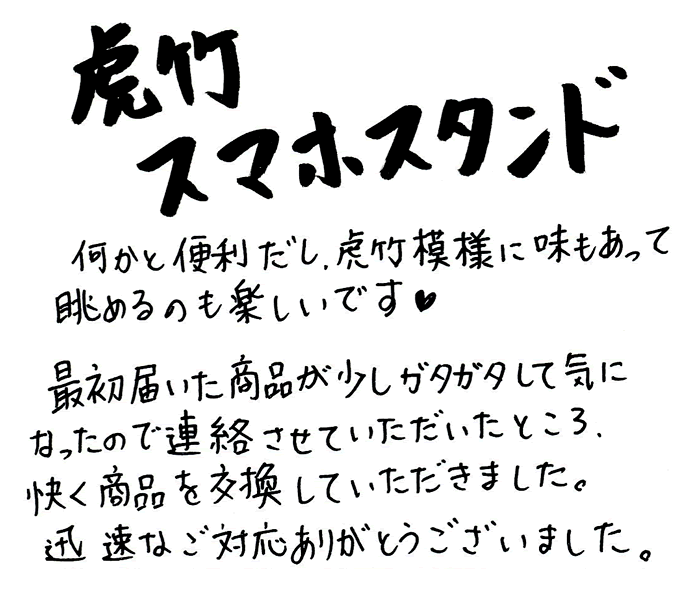 虎竹
スマホスタンド
何かと便利だし、虎竹模様に味もあって
眺めるのも楽しいです♥
最初届いた商品が少しガタガタして気に
なったので連絡させていただいたところ、
快く商品を交換していただきました。
迅速なご対応ありがとうございました。